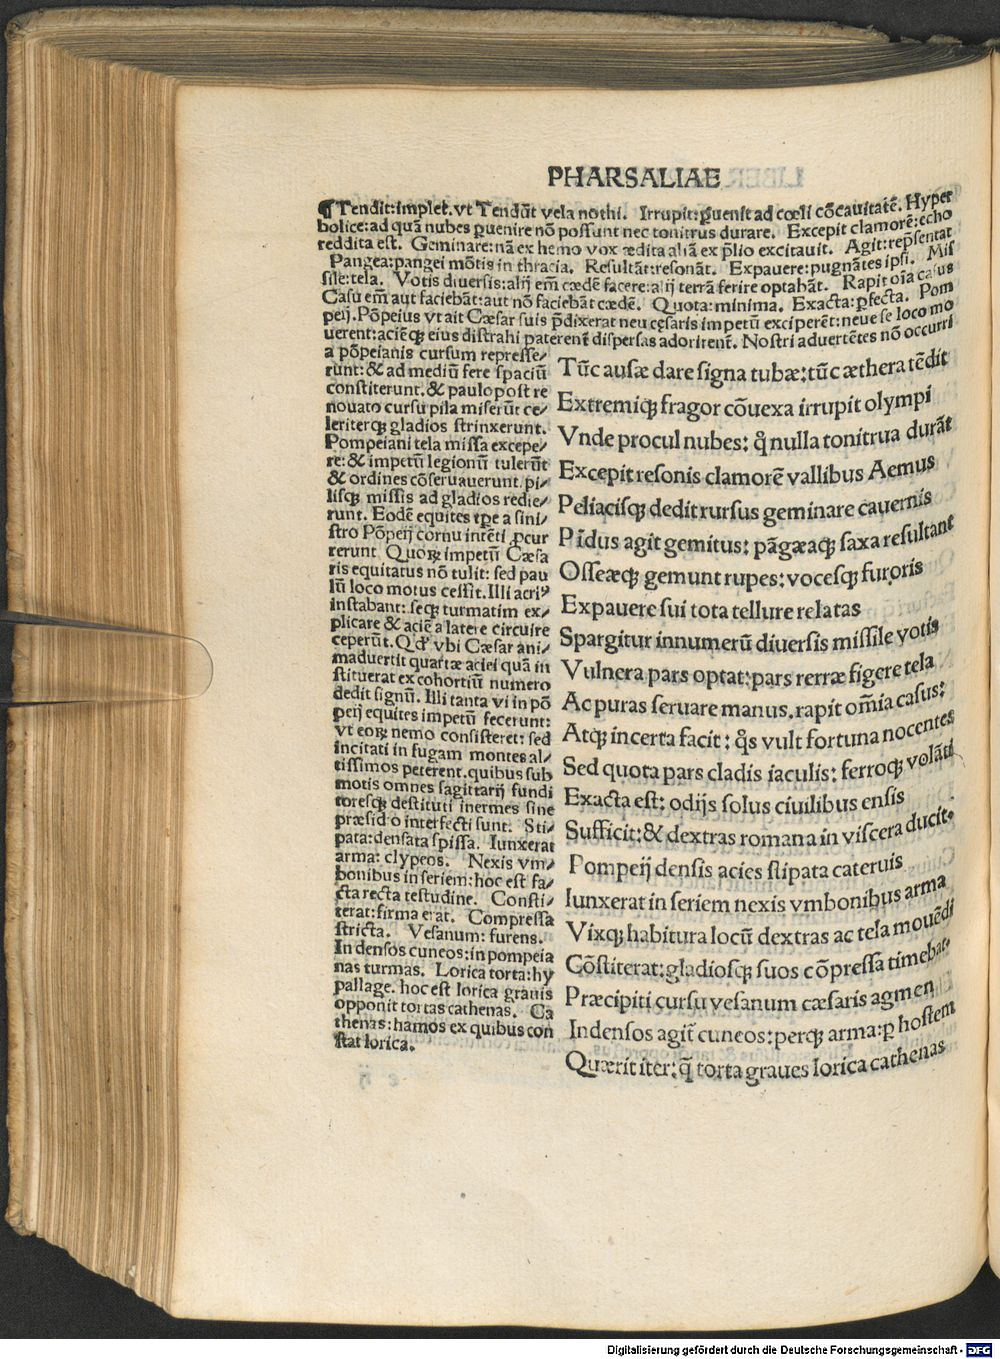 PHARSALIAE
¶ Tendit:implet. vt Tendūt vela nothi. Irrupit:ꝑuenit ad cœli cōcauitatē. Hyper
bolice:ad quā nubes ꝑuenire nō possunt nec tonitrus durare. Excepit clamorē:echo
reddita est. Geminare:nā ex hemo vox ædita aliā ex p̄lio excitauit. Agit:rep̄sentat
Pangea:pangei mōtis in thracia. Resultāt:resonāt. Expauere:pugnātes ipsi. Mis
sile:tela. Votis diuersis:alij em̄ cædē facere:alij terrā ferire optabāt. Rapit oīa casus
Casu em̄ aut faciebāt:aut nō faciebāt cædē. Quota:minima. Exacta:ꝑfecta. Pom
peij. Pōpeius vt ait Cæsar suis p̄dixerat neu cęsaris impetū exciperēt:neue se loco mo
uerent:aciēqꝫ eius distrahi paterent̄ dispersas adorirent̄. Nostri aduertētes nō occurri
a pōpeianis cursum represse/
runt:& ad mediū fere spaciū
constiterunt. & paulo post re
nouato cursu pila miserūt ce/
leriterqꝫ gladios strinxerunt.
Pompeiani tela missa excepe/
re:& impetū legionū tulerūt
& ordines cōseruauerunt. pi/
lisqꝫ missis ad gladios redie/
runt. Eodē equites tꝑe a sini/
stro Pōpeij cornu intēti ꝓcur
rerunt Quoꝝ impetū Cæsa
ris equitatus nō tulit: sed pau
lū loco motus cessit. Illi acriꝰ
instabant: seqꝫ turmatim ex/
plicare & aciē a latere circuire
ceperūt. Qd̓ vbi Cæsar ani/
maduertit quartæ aciei quā in
stituerat ex cohortiū numero
dedit signū. Illi tanta vi in pō
peij equites impetū fecerunt:
vt eoꝝ nemo consisteret: sed
incitati in fugam montes al/
tissimos peterent. quibus sub
motis omnes sagittarij fundi
toresqꝫ destituti inermes sine
præsidio interfecti sunt. Sti/
pata:densata spissa. Iunxerat
arma: clypeos. Nexis vm/
bonibus in seriem:hoc est fa/
cta recta testudine. Consti/
terat:firma erat. Compressa
stricta. Vesanum: furens.
In densos cuneos:in pompeia
nas turmas. Lorica torta:hy
pallage. hoc est lorica grauis
opponit tortas cathenas. Ca
thenas:hamos ex quibus con
stat lorica.
Tūc ausæ dare signa tubæ:tūc æthera tēdit
Extremiqꝫ fragor cōuexa irrupit olympi
Vnde procul nubes: q̊ nulla tonitrua durāt
Excepit resonis clamorē vallibus Aemus
Peliacisqꝫ dedit rursus geminare cauernis
Pīdus agit gemitus: pāgæaqꝫ saxa resultant
Osseæqꝫ gemunt rupes: vocesqꝫ furoris
Expauere sui tota tellure relatas
Spargitur innumerū diuersis missile votis
Vulnera pars optat:pars rerræ figere tela
Ac puras seruare manus. rapit om̄ia casus:
Atqꝫ incerta facit: q̊s vult fortuna nocentes
Sed quota pars cladis iaculis: ferroqꝫ volāti
Exacta est: odijs solus ciuilibus ensis
Sufficit:& dextras romana in viscera ducit.
Pompeij densis acies stipata cateruis
Iunxerat in seriem nexis vmbonibus arma
Vixqꝫ habitura locū dextras ac tela mouēdi
Cōstiterat:gladiosqꝫ suos cōpressa timebat.
Præcipiti cursu vesanum cæsaris agmen
In densos agit̄ cuneos:perqꝫ arma:ꝑ hostem
Quærit iter: q̄ torta graues lorica cathenas
Digitalisierung gefördert durch die Deutsche Forschungsgemeinschaft - DFG